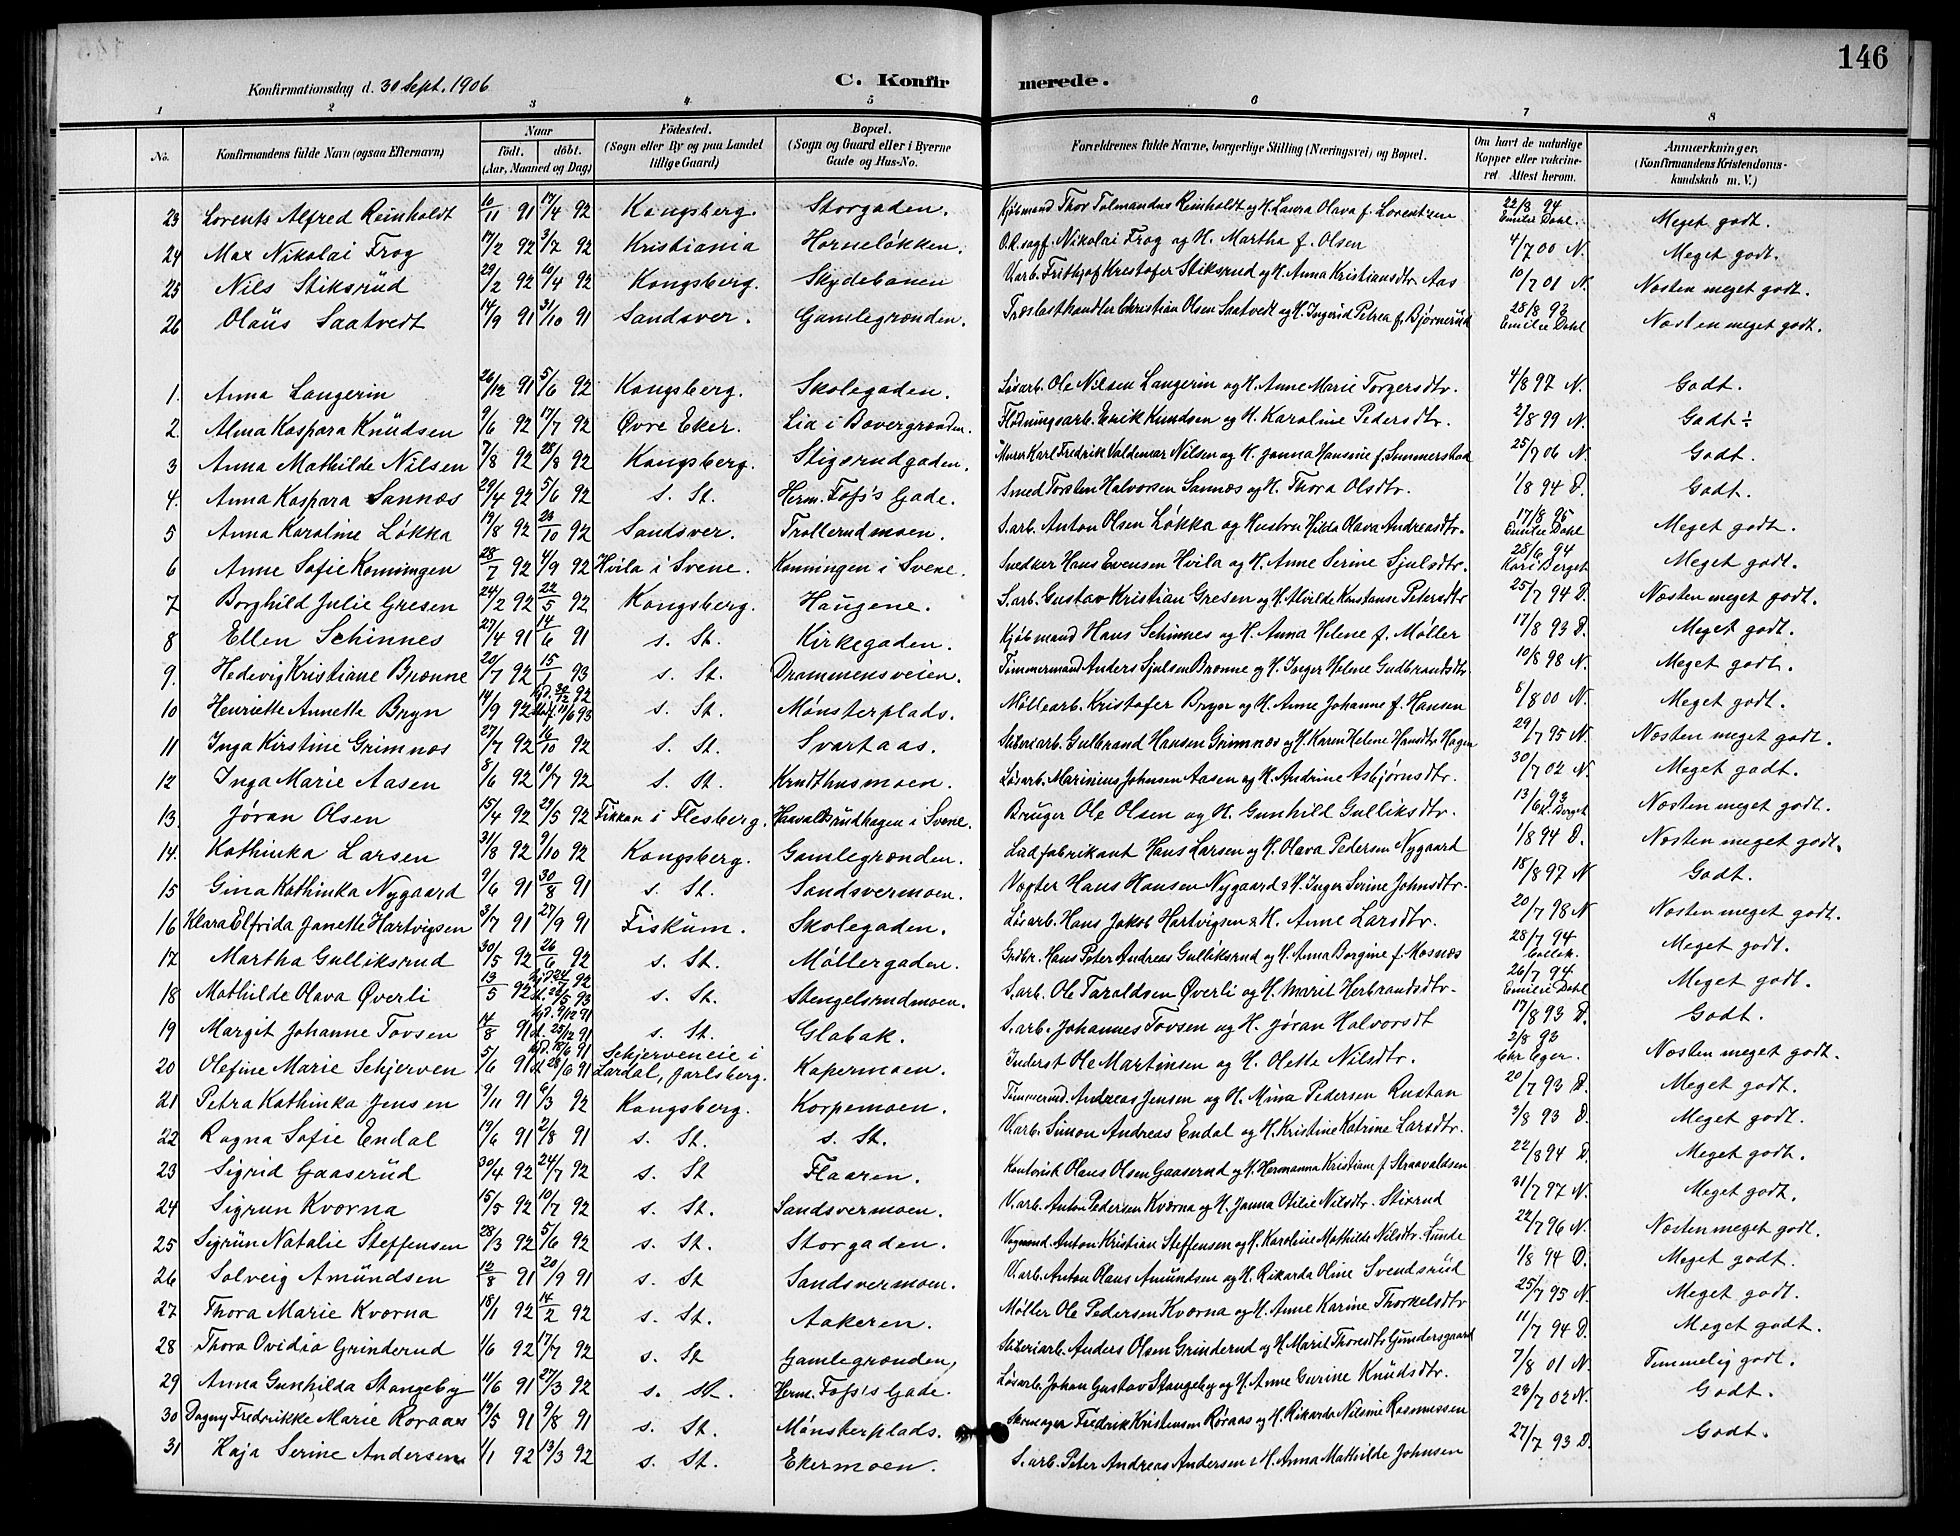 146
Konfirmationsdag d. 30 Sept. 1906
C. Konfirmerede.
1 2 3 4 5 6 7 8
No. Konfirmandens fulde Navn (ogsaa Efternavn) Naar født. døbt. (Aar, Maaned og Dag) Fødested. (Sogn eller By og paa Landet tillige Gaard) Bopæl. (Sogn og Gaard eller i Byerne Gade og Hus-No. Forældrenes fulde Navne, borgerlige Stilling (Næringsvei) og Bopæl. Om havt de naturlige Kopper eller vaccineret. Attest herom. Anmærkninger. (Konfirmandens Kristendomskundskab m. V.)
23 Lorents Alfred Reinholdt 10/11 91 17/4 92 Kongsberg. Storgaden. Kjøbmand Thor Tolmandus Reinholdt og H. Laura Olava f. Lorentzen 22/8 94 Emilie Dahl. Meget godt.
24 Max Nikolai Frog 17/2 92 3/7 92 Kristiania Horneløkken. O.R.sagf. Nikolai Frog og H. Martha f. Olsen 4/7 00 N. Meget godt.
25 Nils Stiksrud 29/2 92 10/4 92 Kongsberg. Skydebanen V.arb. Frithjof Krestofer Stiksrud og H. Anna Kristiansdtr. Aas 10/7 01 N. Næsten meget godt.
26 Olaüs Saatvedt 14/9 91 31/10 91 Sandsver. Gamlegrænden. Træslasthandler Christian Olsen Saatvedt og H. Ingerid Petrea f. Bjørnerüd 28/8 93 Emilie Dahl Næsten meget godt.
1. Anna Langerin 26/12 91 5/6 92 Kongsberg. Skolegaden. Løsarb. Ole Nilsen Langerin og H. Anne Marie Torgersdtr. 4/8 97 N. Godt.
2. Alma Kaspara Knüdsen 9/6 92 17/7 92 Øvre Eker. Lia i Bævergrænden. Flødningsarb. Enrik Knudsen og H. Karoline Pedersdtr. 2/8 99 N. Godt ÷
3 Anna Mathilde Nilsen 7/8 92 28/8 92 Kongsberg. Stigsrudgaden. Murer Karl Fredrik Valdemar Nilsen og H. Janna Hansine f. Sommerstad 25/7 06 N. Godt.
4. Anna Kaspara Sannæs 29/4 92 5/6 92 s. St. Herm. Foss's Gade. Smed Torsten Halvorsen Sannæs og H. Thora Olsdtr. 1/8 94 D. Godt.
5 Anna Karoline Løkka 19/8 92 23/10 92 Sandsver. Trollerudmoen. S.arb. Anton Olsen Løkka og Hustru Hilda Olava Andreasdtr. 17/8 95 Emilie Dahl Meget godt.
6 Anne Sofie Konningen 28/7 92 4/9 92 Hvila i Svene. Konningen i Svene. Snedker Hans Evensen Hvila og H. Anne Serine Sjulsdtr. 28/6 94 Kari Berget Meget godt.
7 Borghild Julie Gresen 24/2 92 22/5 92 Kongsberg. Haügene. S.arb. Gustav Kristian Gresen og H. Alvilde Konstanse Petersdtr 25/7 94 D. Næsten meget godt.
8 Ellen Schinnes 27/4 91 14/6 91 s. St. Kirkegaden. Kjøbmand Hans Schinnes og H. Anna Helene f. Møller 17/8 93 D. Meget godt.
9. Hedevig Kristiane Brænne 20/7 92 15/1 93 s. St. Drammensveien. Timmermand Anders Sjulsen Brænne og H. Inger Helene Gudbrandsdtr 10/8 98 N. Meget godt.
10 Henriette Annette Bryn 14/9 92 s. St. Mønsterplads. Møllearb. Kristofer Bryn og H. Anne Johanne f. Hansen 8/8 00 N. Meget godt.
11 Inga Kirstine Grimnæs 27/7 92 16/10 92 s. St. Svartaas. Sliberiarb. Gulbrand Hansen Grimnæs og H. Karen Helene Hansdtr. Hagen 29/7 95 N. Næsten meget godt.
12 Inga Marie Aasen 8/6 92 10/7 92 s. St. Krudthusmoen. Løsarb. Marinius Johnsen Aasen og H. Andrine Asbjørnsdtr. 30/7 02 N. Meget godt.
13. Jøran Olsen 15/4 92 29/5 92 Fikkan i Flesberg. Haavaldsrudhagen i Svene. Bruger Ole Olsen og H. Gunhild Gulliksdtr. 13/6 93 K. Berget Næsten meget godt.
14. Kathinka Larsen 31/8 92 9/10 92 Kongsberg. Gamlegrænden. Ladfabrikant Hans Larsen og H. Olava Pedersen Nygaard 1/8 94 D. Næsten meget godt.
15 Gina Kathinka Nygaard 9/6 91 30/8 91 s. St. Sandsvermoen. Vogter Hans Hansen Nygaard & H. Inger Serine Johnsdtr. 18/8 97 N Godt.
16 Klara Elfrida Janette Hartvigsen 3/7 91 27/9 91 Fiskum. Skolegaden. Løsarb. Hans Jakob Hartvigsen & H. Anne Larsdtr. 20/7 98 N Næsten meget godt.
17 Martha Gulliksrud 30/5 92 26/6 92 s. St. Møllergaden. Grdbr. Hans Peter Andreas Gulliksrud og H. Anna Borgine f. Mosnæs 28/7 94 Meget godt.
18 Mathilde Olava Øverli 13/5 92 s. St. Stengelsrudmoen. S.arb. Ole Taraldsen Øverli og H. Marit Herbrandsdtr. 26/7 94 Emilie Dahl Meget godt.
19 Margit Johanne Tovsen 14/8 91 s. St. Glabak. S.arb. Johannes Tovsen og H. Jøran Halvorsdt 17/8 93 D. Godt.
20 Olefine Marie Schjerven 5/6 91 Schjerveneie i Lardal, Jarlsberg. Kapermoen. Inderst Ole Martinsen og H. Olette Nilsdtr. 2/8 93 Chr Eger. Næsten meget godt.
21 Petra Kathinka Jensen 9/11 91 6/3 92 Kongsberg. Korpemoen. Tømmermd. Andreas Jensen og H. Mina Pedersen Rustan 20/7 93 D. Meget godt.
22 Ragna Sofie Endal 19/6 91 2/8 91 s. St. s. St. V.arb. Simon Andreas Endal og H. Kristine Katrine Larsdtr. 3/8 93 D. Meget godt.
23 Sigrid Gaaserüd 30/4 92 24/7 92 s. St Flaaren. Kontorist Olaus Olsen Gaaserud og H. Hermanna Kristiane f. Straavaldsen 22/8 94 D. Meget godt.
24 Sigrun Kværna 15/5 92 10/7 92 s. St. Sandsvermoen. V.arb. Anton Pedersen Kværna og H. Janna Otilie Nilsdtr. Stixrud 31/7 97 N. Meget godt.
25 Sigrün Natalie Steffensen 28/3 92 5/6 92 s. St. Storgaden. Vognmd. Anton Kristian Steffensen og H. Karoline Mathilde Nilsdtr. Lunde 22/7 96 N. Næsten meget godt.
26 Solveig Amündsen 12/8 91 20/9 91 s. St Sandsvermoen. V.arb. Anton Olaus Amündsen og H. Rikarda Oline Svendsrüd 1/8 94 D. Meget godt.
27 Thora Marie Kværna 18/1 92 14/2 92 s. St. Aakeren. Møller Ole Pedersen Kværna og H. Anne Karine Thorkelsdtr 25/7 95 N. Meget godt.
28 Thora Ovidia Grinderud 1/6 92 17/7 92 s. St Gamlegrænden, Sliberiarb. Anders Olsen Grinderud og H. Marit Thoresdtr Gundersgaard 11/7 94 D. Meget godt.
29 Anna Gunhilda Stangeby 11/6 91 27/3 92 s. St. Herm. Foss's Gade. Løsarb. Johan Gustav Stangeby og H. Anne Gurine Knüdsdtr. 7/8 01 N. Temmelig godt.
30 Dagny Fredrikke Marie Røraas 19/5 91 9/8 91 s. St. Mønsterplads. Skomager Fredrik Kristensen Røraas og H. Rikarda Nilsine Rasmussen 23/7 02 N. Godt.
31 Kaja Serine Andersen 1/1 92 13/3 92 s. St. Ekermoen. S.arb. Peter Andreas Andersen & H. Anna Mathilde Johnsen 27/7 93 D. Godt.